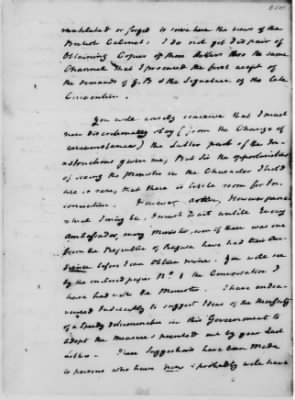 mutilated or forged to serve the views of the
British Cabinet: I do not yet despair of
obtaining Copies of those Letters thro the same
Channel that I procured the first accept of
the demands of G.B & the Signature of the late
Convention.
You will easily conceive that I must
now discretionally obey (from the Change of
circumstances) the latter part of the In-
structions given me, But the opportunities
of seeing the Minister in the Character I hold
are so rare, that there is little room for In-
however
I must wait untill Every
Ambassador, every Minister, even if there was one
from the Republic of Ragusa have had their Au-
dience before I can obtain mine. You will see
by the inclosed paper No. 1 the Conversation I
have had with the Minister. I have endea-
voured Indirectly to suggest Ideas of the Necessity
of a speedy determination in this Government to
adopt the measures pointed me by your last
letter. These suggestions have been made
to persons who have now & probably will have